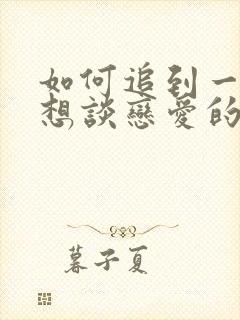 如何追到一
想談戀愛的
暮子夏